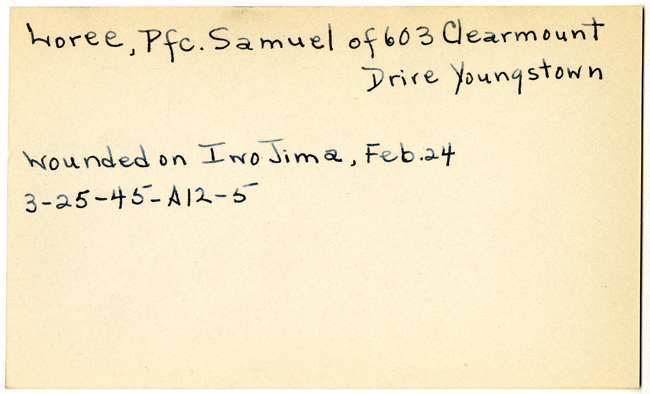 Loree, Pfc. Samuel of 603 Clearmount
Drive Youngstown
Wounded on Iwo Jima, Feb. 24
3-25-45-A12-5